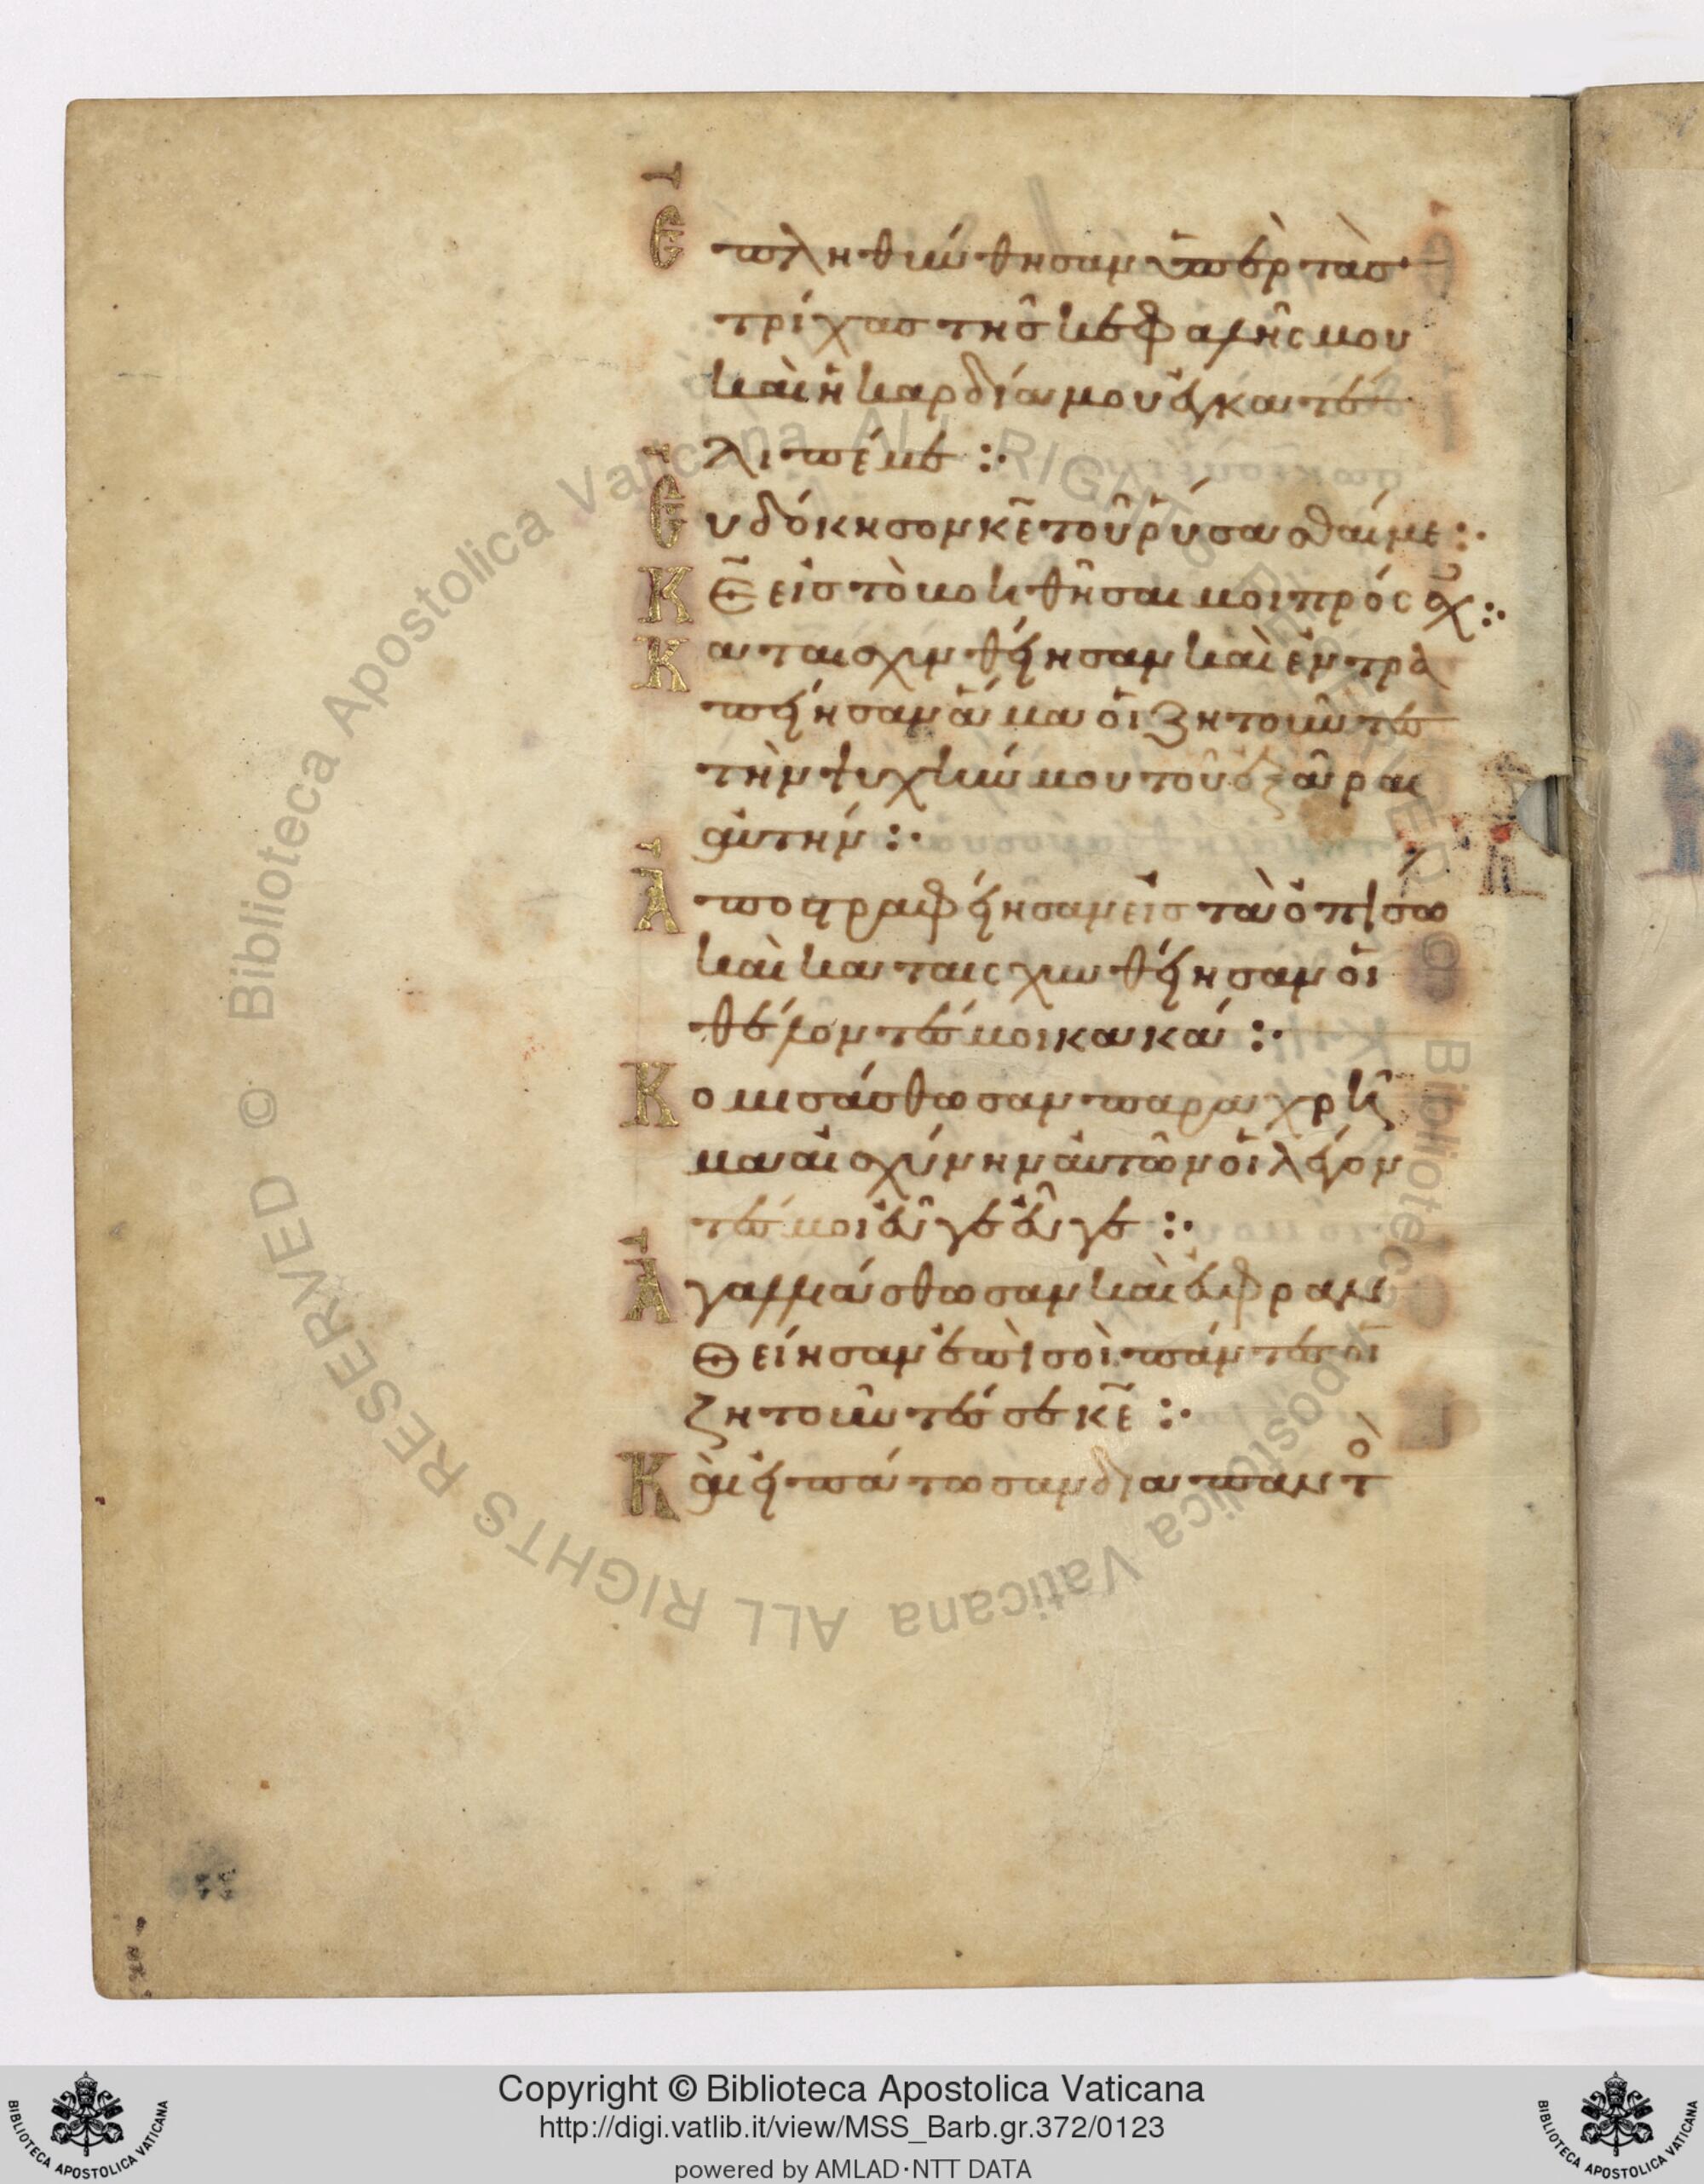 Ἐπληθύνθησαν ὑπὲρ τὰσ
τρίχασ τῆσ κεφαλῆς μου
καὶ ἡ καρδία μου ἐγκατέ
λιπέ με :·
Εὐδόκησον κ̅ε̅ τοῦ ῥύσασθαί με :·
Κ̅Ε̅ εἰσ τὸ βοηθῆσαι μοι πρόσχ :·
Καταισχυνθείησαν καὶ ἐντρα
πείησαν ἅμα οἱ ζητοῦντεσ
τὴν ψυχήν μου τοῦ ἐξᾶραι
αὐτήν :·
Ἀποστραφείησαν εἰσ τὰ ὀπίσω
καὶ καταισχυνθείησαν οἱ
θέλοντέσ μοι κακά :·
Κομισάσθωσαν παραχρῆ
μα αἰσχύνην αὐτῶν οἱ λέγον
τέσ μοι εὖγε εὖγε :·
Ἀγαλλιάσθωσαν καὶ εὐφραν
θείησαν ἐπὶ σοὶ πάντεσ οἱ
ζητοῦντέσ σε κ̅ε̅ :·
Καὶ εἰπάτωσαν διαπαντὸ
© Biblioteca Apostolica Vaticana ALL RIGHTS RESERVED © Biblioteca Apostolica Vaticana ALL RIGHTS RESERVED
BIBLIOTECA APOSTOLICA VATICANA
Copyright © Biblioteca Apostolica Vaticana
http://digi.vatlib.it/view/MSS_Barb.gr.372/0123
powered by AMLAD·NTT DATA
BIBLIOTECA APOSTOLICA VATICANA